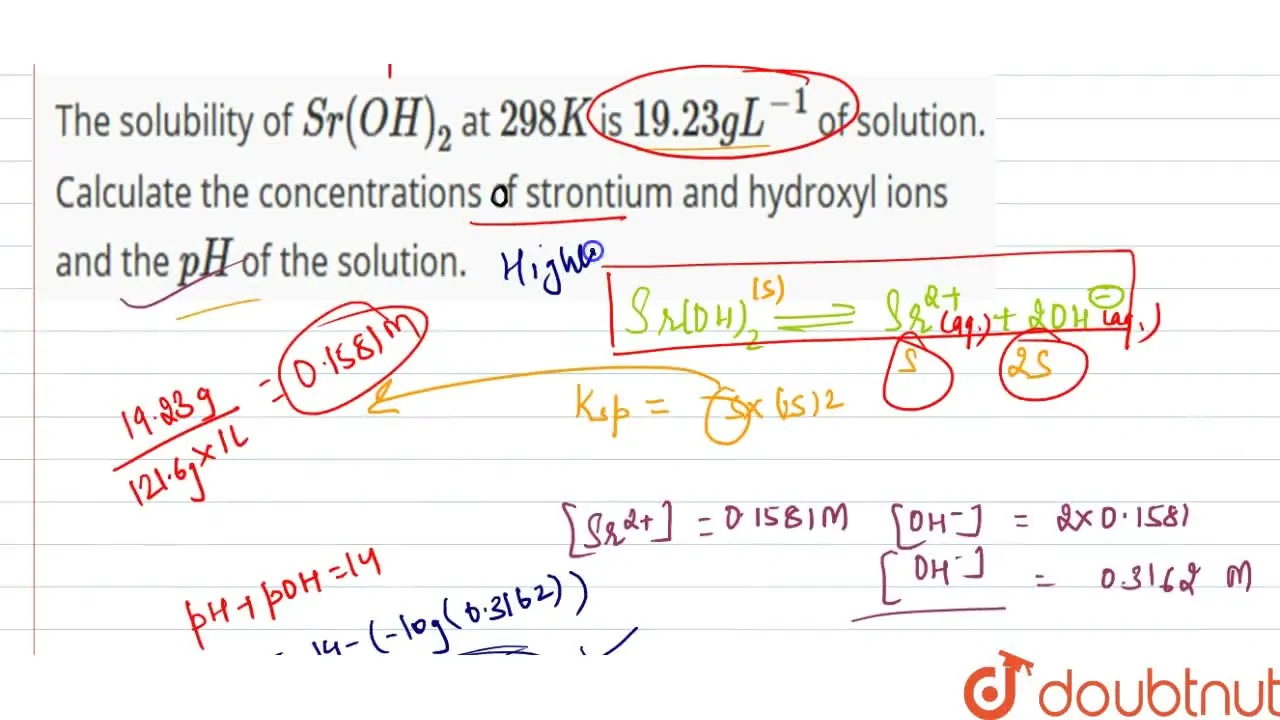 The solubility of Sr(OH)₂ at 298K is 19.23gL⁻¹ of solution.
Calculate the concentrations of strontium and hydroxyl ions
and the pH of the solution.
Sr(OH)₂ (s) ⇌ Sr²⁺ (aq.) + 2OH⊖ (aq.)
S 2S
19.23g / 121.6g × 1L = 0.1581M
Ksp = S × (2S)2
[Sr2+] = 0.1581M [OH⁻] = 2×0.1581
[OH⁻] = 0.3162 M
pH + pOH = 14
14-(-log(0.3162))
doubtnut